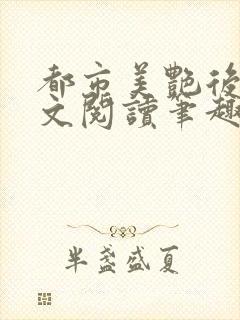 都市美艷後
文閱讀筆趣
半盞盛夏